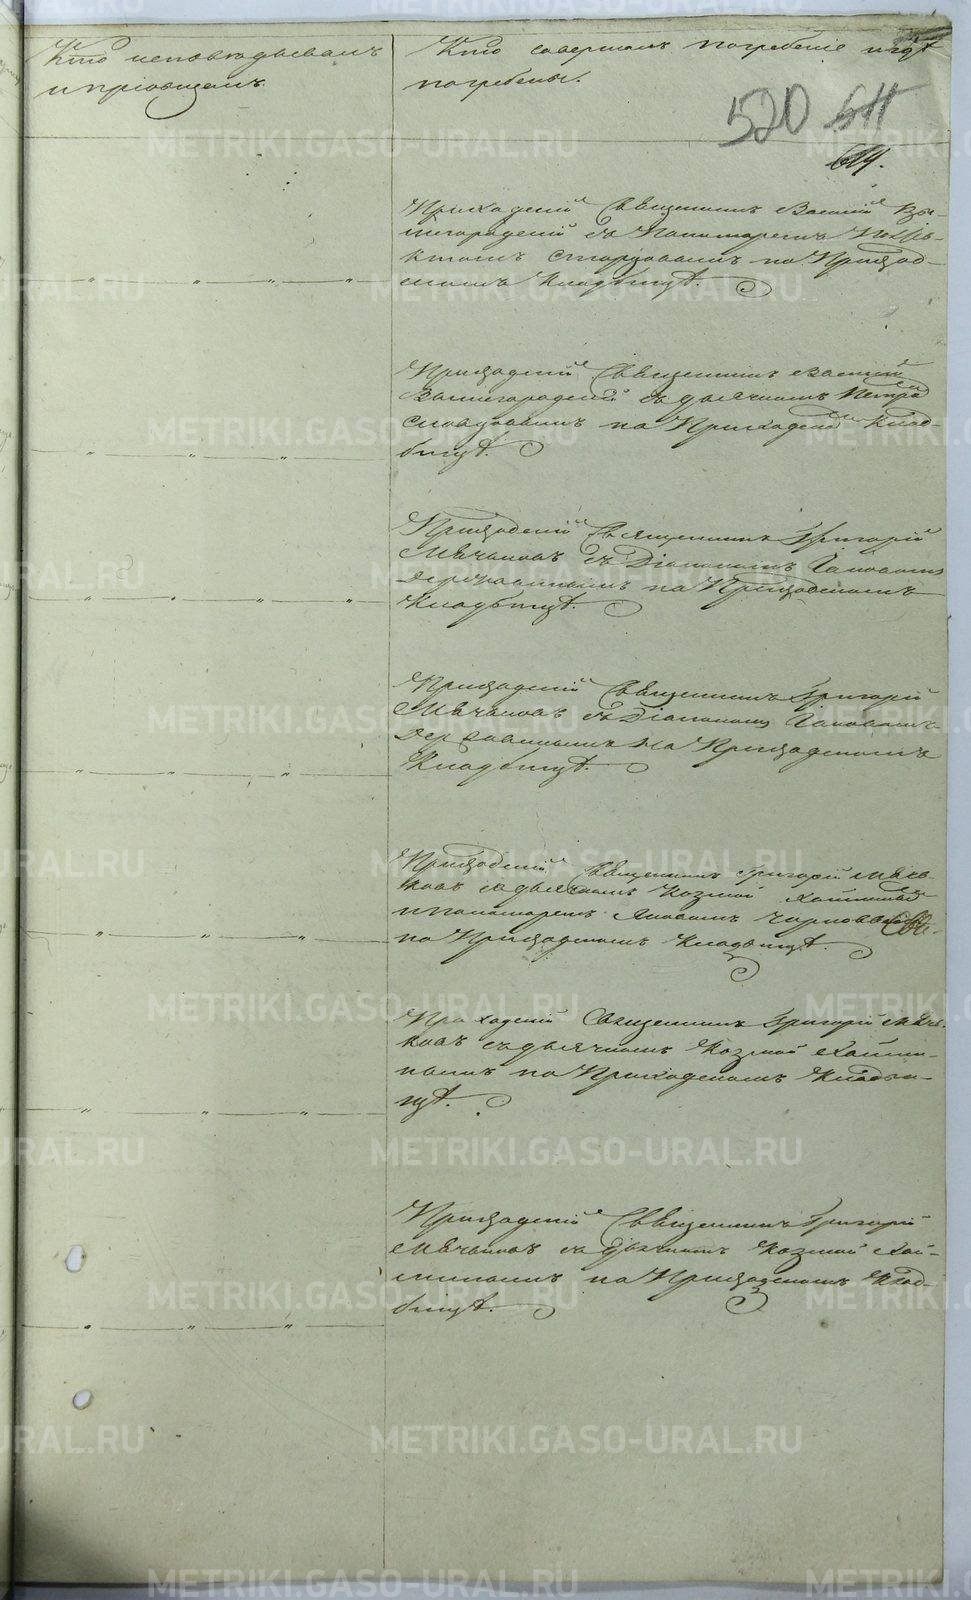 Кто исповѣдывалъ
и пріобщалъ.
Кто совершалъ погребеніе и гдѣ
погребены.
520 611
614.
Приходскій Священникъ Василій Вы-
шегородскій съ Пономаремъ
на Приход-
скомъ Кладбищѣ.
Приходскій Священникъ Василій
Вышегородскій съ дьячкомъ Петромъ
на Приходскомъ Клад-
бищѣ.
Приходскій Священникъ Григорій
Мячковъ съ Діакономъ Іаковомъ
Державинымъ на Приходскомъ
Кладбищѣ.
Приходскій Священникъ Григорій
Мячковъ съ Діакономъ Іаковомъ
Державинымъ на Приходскомъ
Кладбищѣ.
Приходскій Священникъ Григорій Мяч-
ковъ съ дьячкомъ Козмой
и пономаремъ
на Приходскомъ Кладбищѣ.
Приходскій Священникъ Григорій Мяч-
ковъ съ дьячкомъ Козмой
на Приходскомъ Кладби-
щѣ.
Приходскій Священникъ Григорій
Мячковъ съ дьячкомъ Козмой
на Приходскомъ Клад-
бищѣ.
METRIKI.GASO-URAL.RU